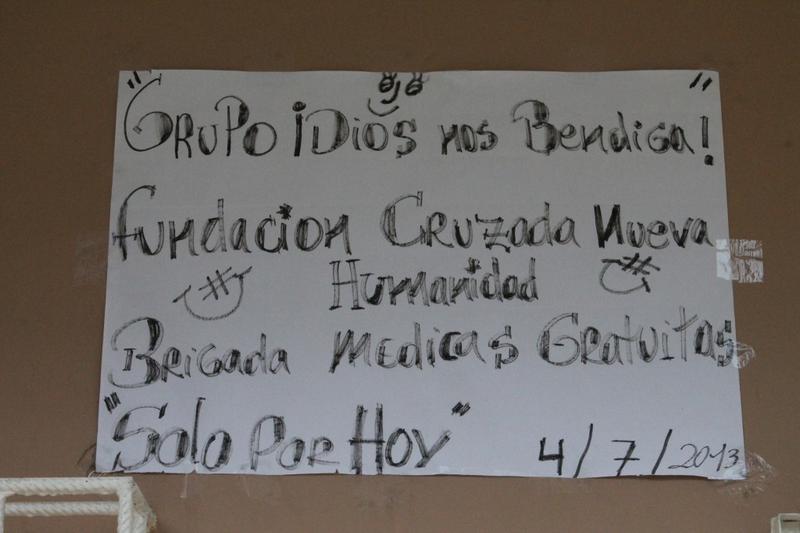 "Grupo ¡Dios nos Bendiga!"
Fundacion Cruzada Nueva
Humanidad
Brigada Medicas Gratuitas
"Solo Por Hoy" 4/7/2013